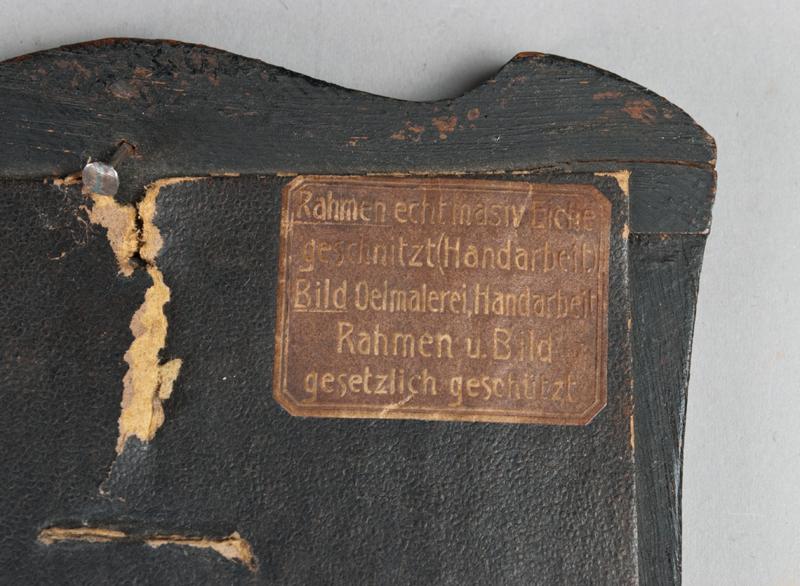 Rahmen echt masiv Eiche
geschnitzt (Handarbeit)
Bild Oelmalerei, Handarbeit
Rahmen u. Bild
gesetzlich geschützt